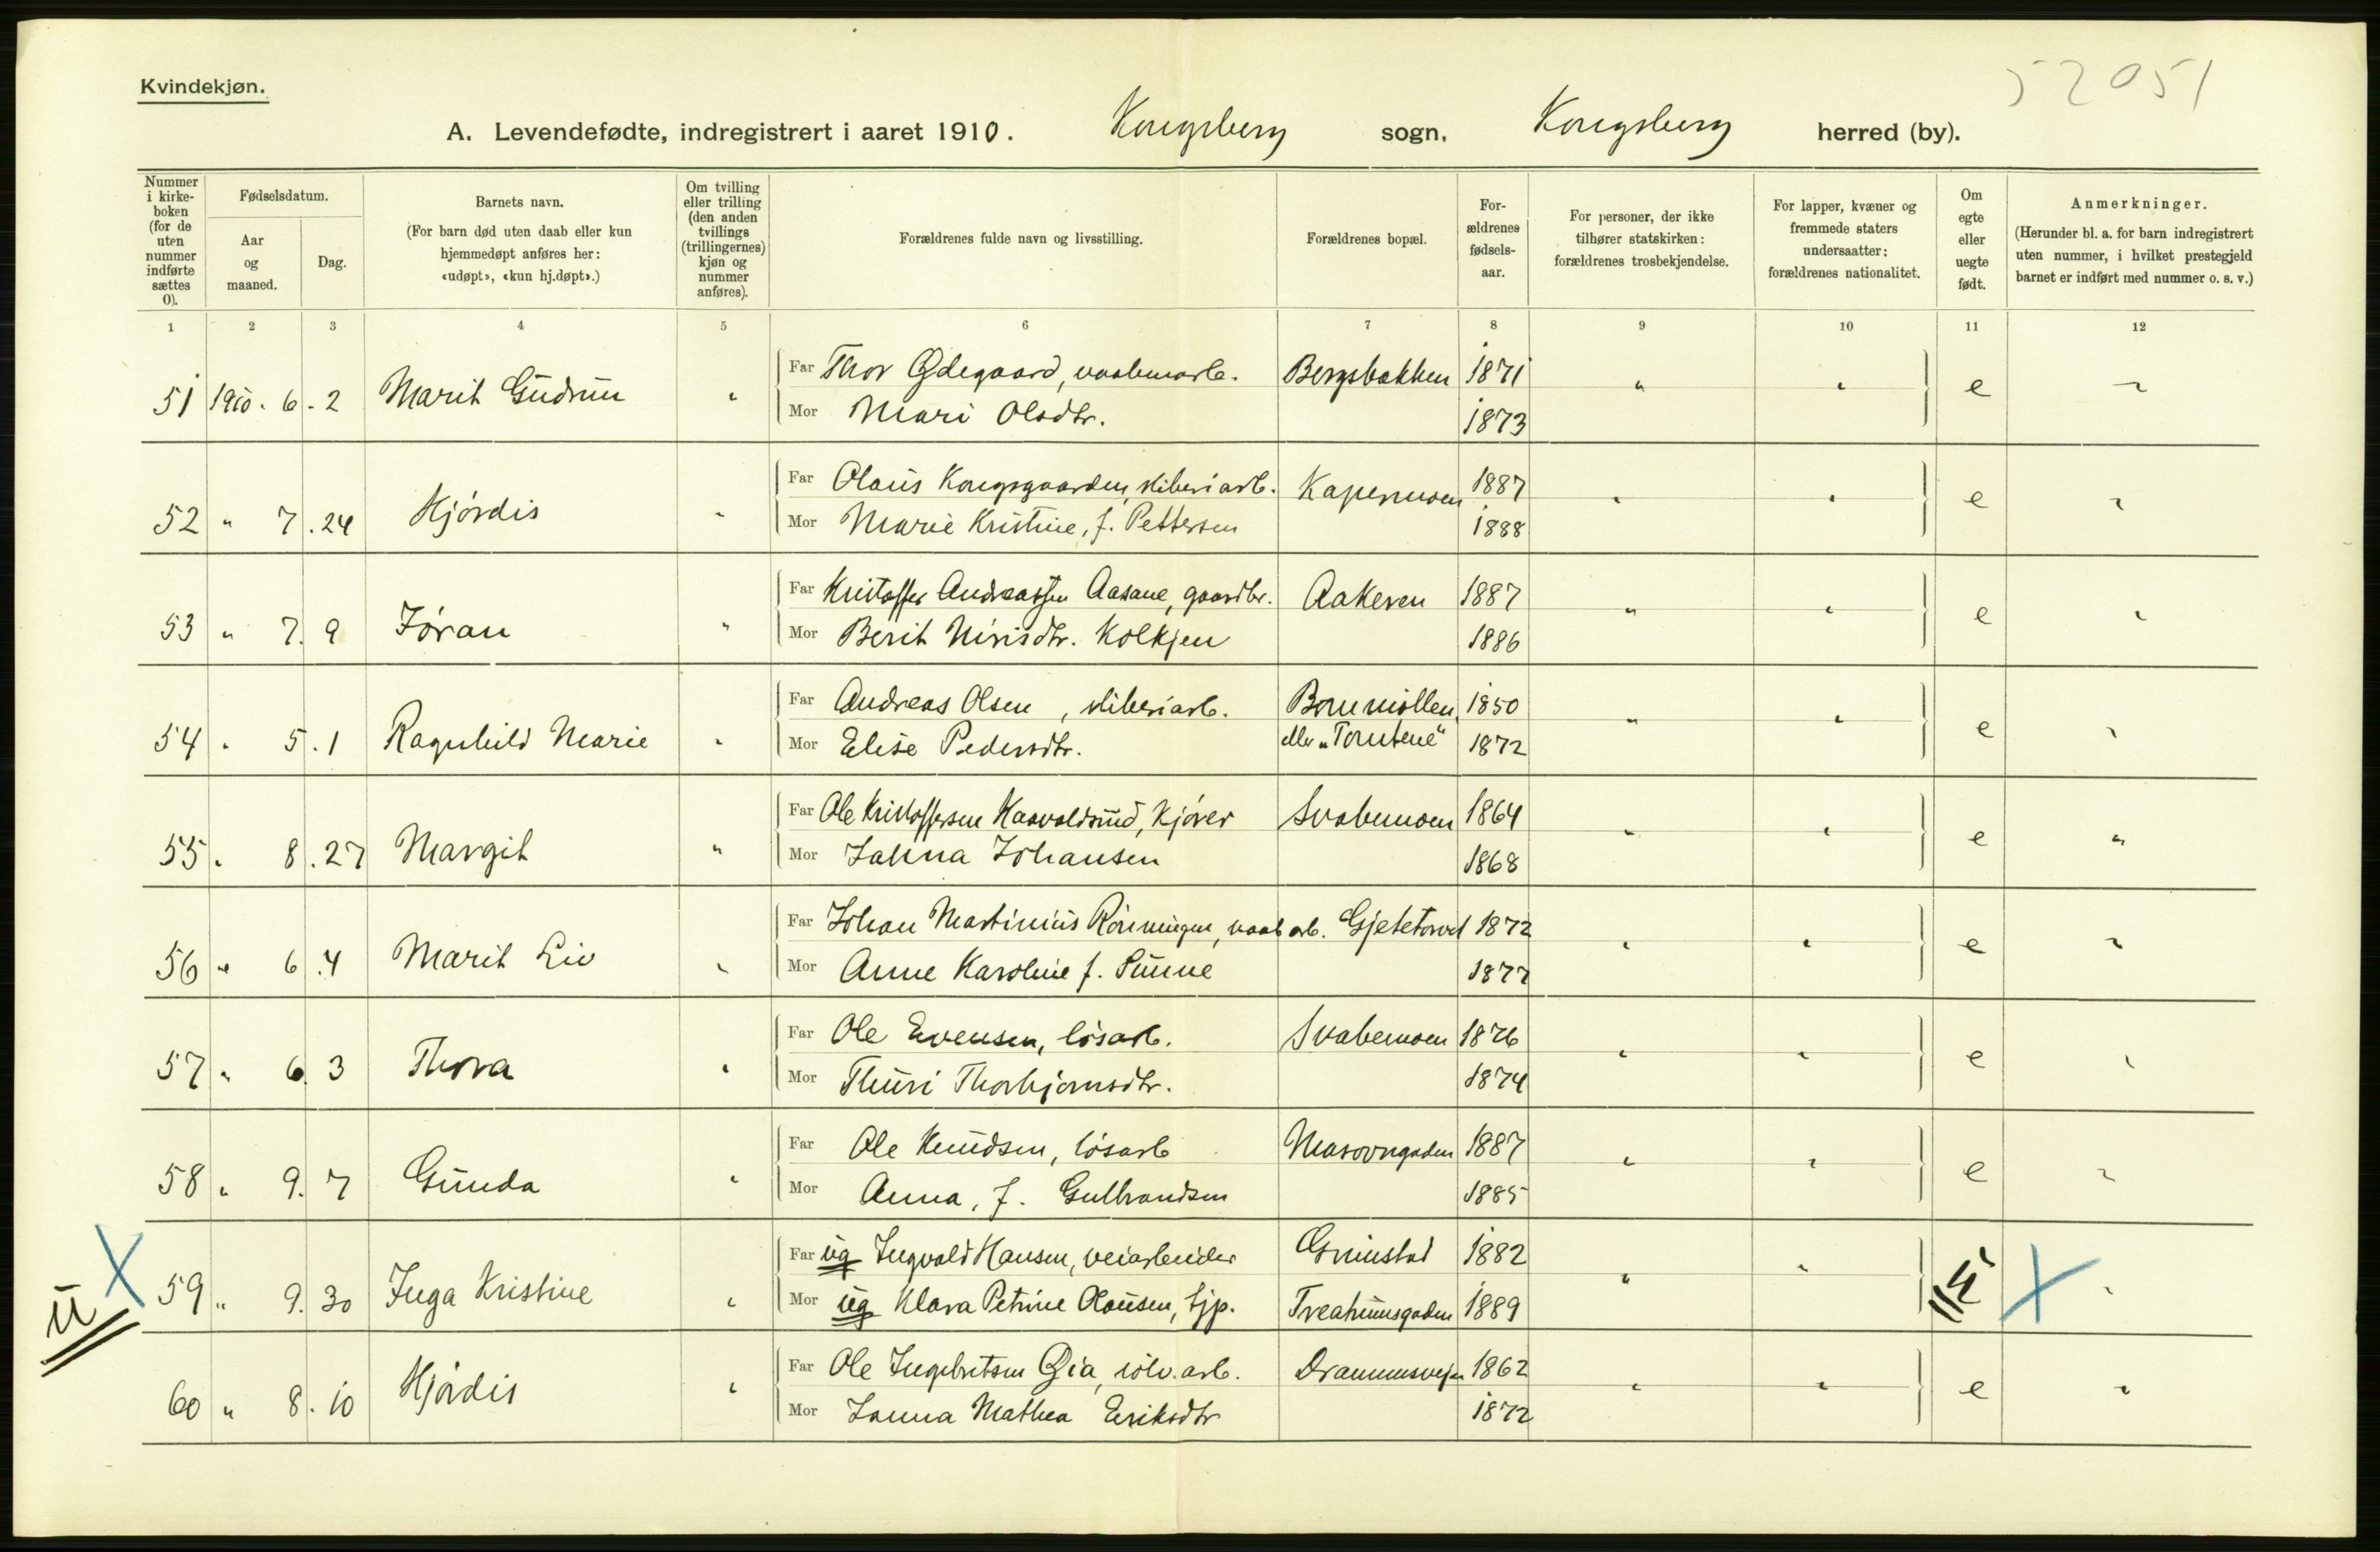 52051
Kvindekjøn.
A. Levendefødte, indregistrert i aaret 1910. Kongsberg sogn, Kongsberg herred (by).
Nummer i kirke-boken (for de uten nummer indførte sættes 0).
Fødselsdatum.
Aar og maaned.
Dag.
Barnets navn.
(For barn død uten daab eller kun hjemmedøpt anføres her: «udøpt», «kun hj.døpt».)
Om tvilling eller trilling (den anden tvillings (trillingernes) kjøn og nummer anføres).
Forældrenes fulde navn og livsstilling.
Forældrenes bopæl.
For-ældrenes fødsels-aar.
For personer, der ikke tilhører statskirken: forældrenes trosbekjendelse.
For lapper, kvæner og fremmede staters undersaatter: forældrenes nationalitet.
Om egte eller uegte født.
Anmerkninger.
(Herunder bl. a. for barn indregistrert uten nummer, i hvilket prestegjeld barnet er indført med nummer o. s. v.)
1 2 3 4 5 6 7 8 9 10 11 12
51 1910. 6. 2 Marit Gudrun " Far Thor Ødegaard, vaabenarb. Bergsbakken 1871 " " e "
Mor Mari Olsdtr. 1873
52 " 7. 24 Hjördis " Far Olaus Kongsgaarden, sliberiarb. Kapermoen 1887 " " e "
Mor Marie Kristine, f. Pettersen 1888
53 " 7. 9 Jöran " Far Kristoffer Andreassen Aasane, gaardbr. Aakeren 1887 " " e "
Mor Berit Nirisdtr. Kolkjen 1886
54 " 5. 1 Ragnhild Marie " Far Andreas Olsen, sliberiarb. 1850 " " e "
Mor Elise Pedersdtr. eller 1872
55 " 8. 27 Margit " Far Ole Kristoffersen Haavaldsrud, kjörer Svabemoen 1864 " " e "
Mor Jahna Johansen 1868
56 " 6. 4 Marit Liv " Far Johan Martinius Rönningen, vaabarb. Gjetetorvet 1872 " " e "
Mor Anne Karoline f. 1877
57 " 6. 3 Thora " Far Ole Evensen, lösarb. Svabemoen 1876 " " e "
Mor Thuri Thorbjornsdtr. 1874
58 " 9. 7 Gunda " Far Ole Knudsen, lösarb Masovngaden 1887 " " e "
Mor Anna, f. Gulbrandsen 1885
u X 59 " 9. 30 Inga Kristine " Far ug Ingvald Hansen, veiarbeider Grimstad 1882 " " u X "
Mor ug Klara Petrine Olausen, tjp. 1889
60 " 8. 10 Hjördis " Far Ole Ingebritsen Øia, sölv.arb. Drammensvejen 1862 " " e "
Mor Janna Mathea Eriksdtr 1872